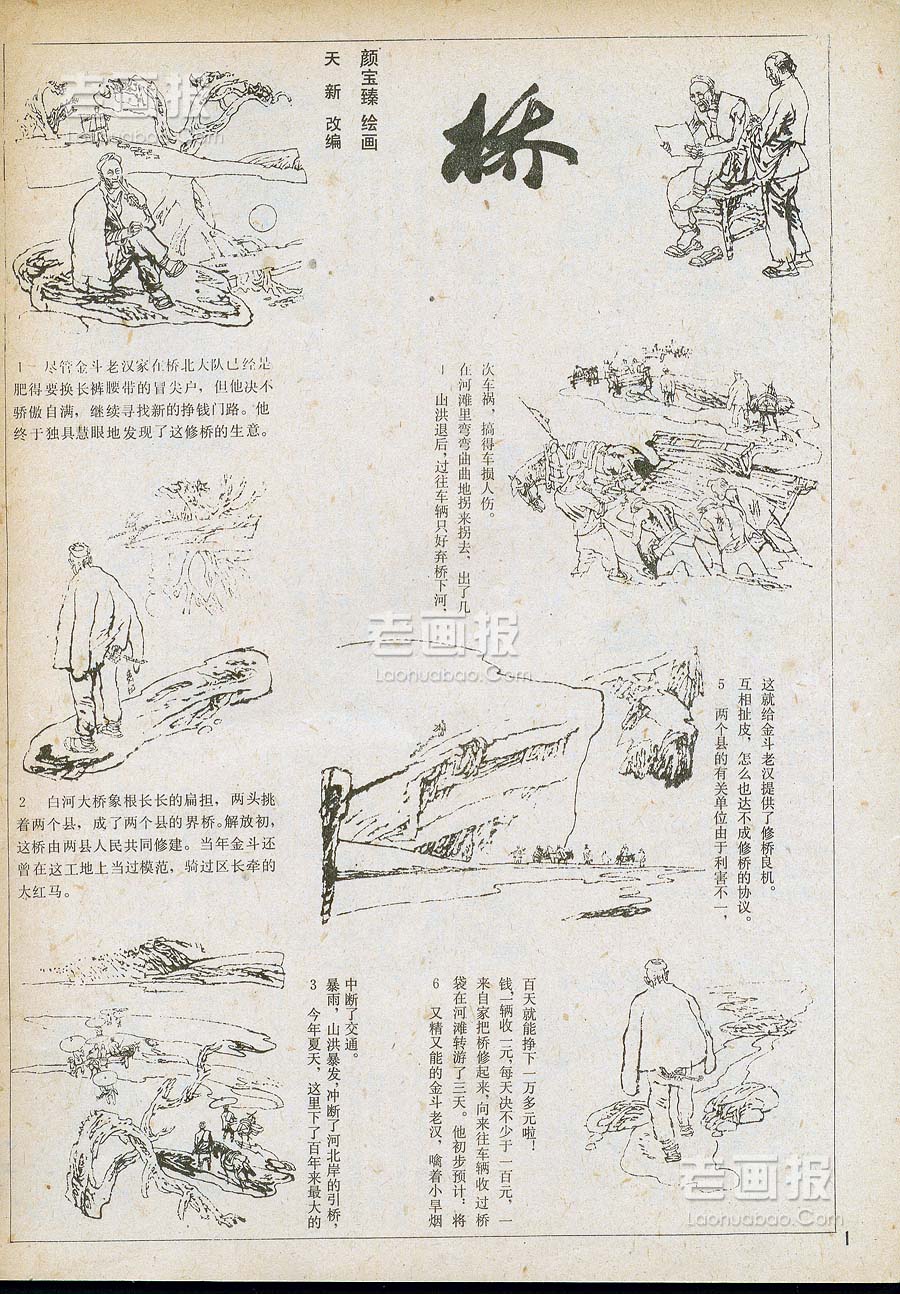 老画报
Laohuabao.Com
桥
天新 改编
颜宝臻 绘画
1 尽管金斗老汉家在桥北大队已经是
肥得要换长裤腰带的冒尖户，但他决不
骄傲自满，继续寻找新的挣钱门路。他
终于独具慧眼地发现了这修桥的生意。
2 白河大桥象根长长的扁担，两头挑
着两个县，成了两个县的界桥。解放初，
这桥由两县人民共同修建。当年金斗还
曾在这工地上当过模范，骑过区长牵的
大红马。
3 今年夏天，这里下了百年来最大的
暴雨，山洪暴发，冲断了河北岸的引桥，
中断了交通。
4 山洪退后，过往车辆只好弃桥下河，
在河滩里弯弯曲曲地拐来拐去，出了几
次车祸，搞得车损人伤。
老画报
Laohuabao.Com
5 两个县的有关单位由于利害不一，
互相扯皮，怎么也达不成修桥的协议。
这就给金斗老汉提供了修桥良机。
6 又精又能的金斗老汉，噙着小旱烟
袋在河滩转游了三天。他初步预计：将
来自家把桥修起来，向来往车辆收过桥
钱，一辆收一元，每天决不少于一百元，一
百天就能挣下一万多元啦！
老画报
Laohuabao.Com
1